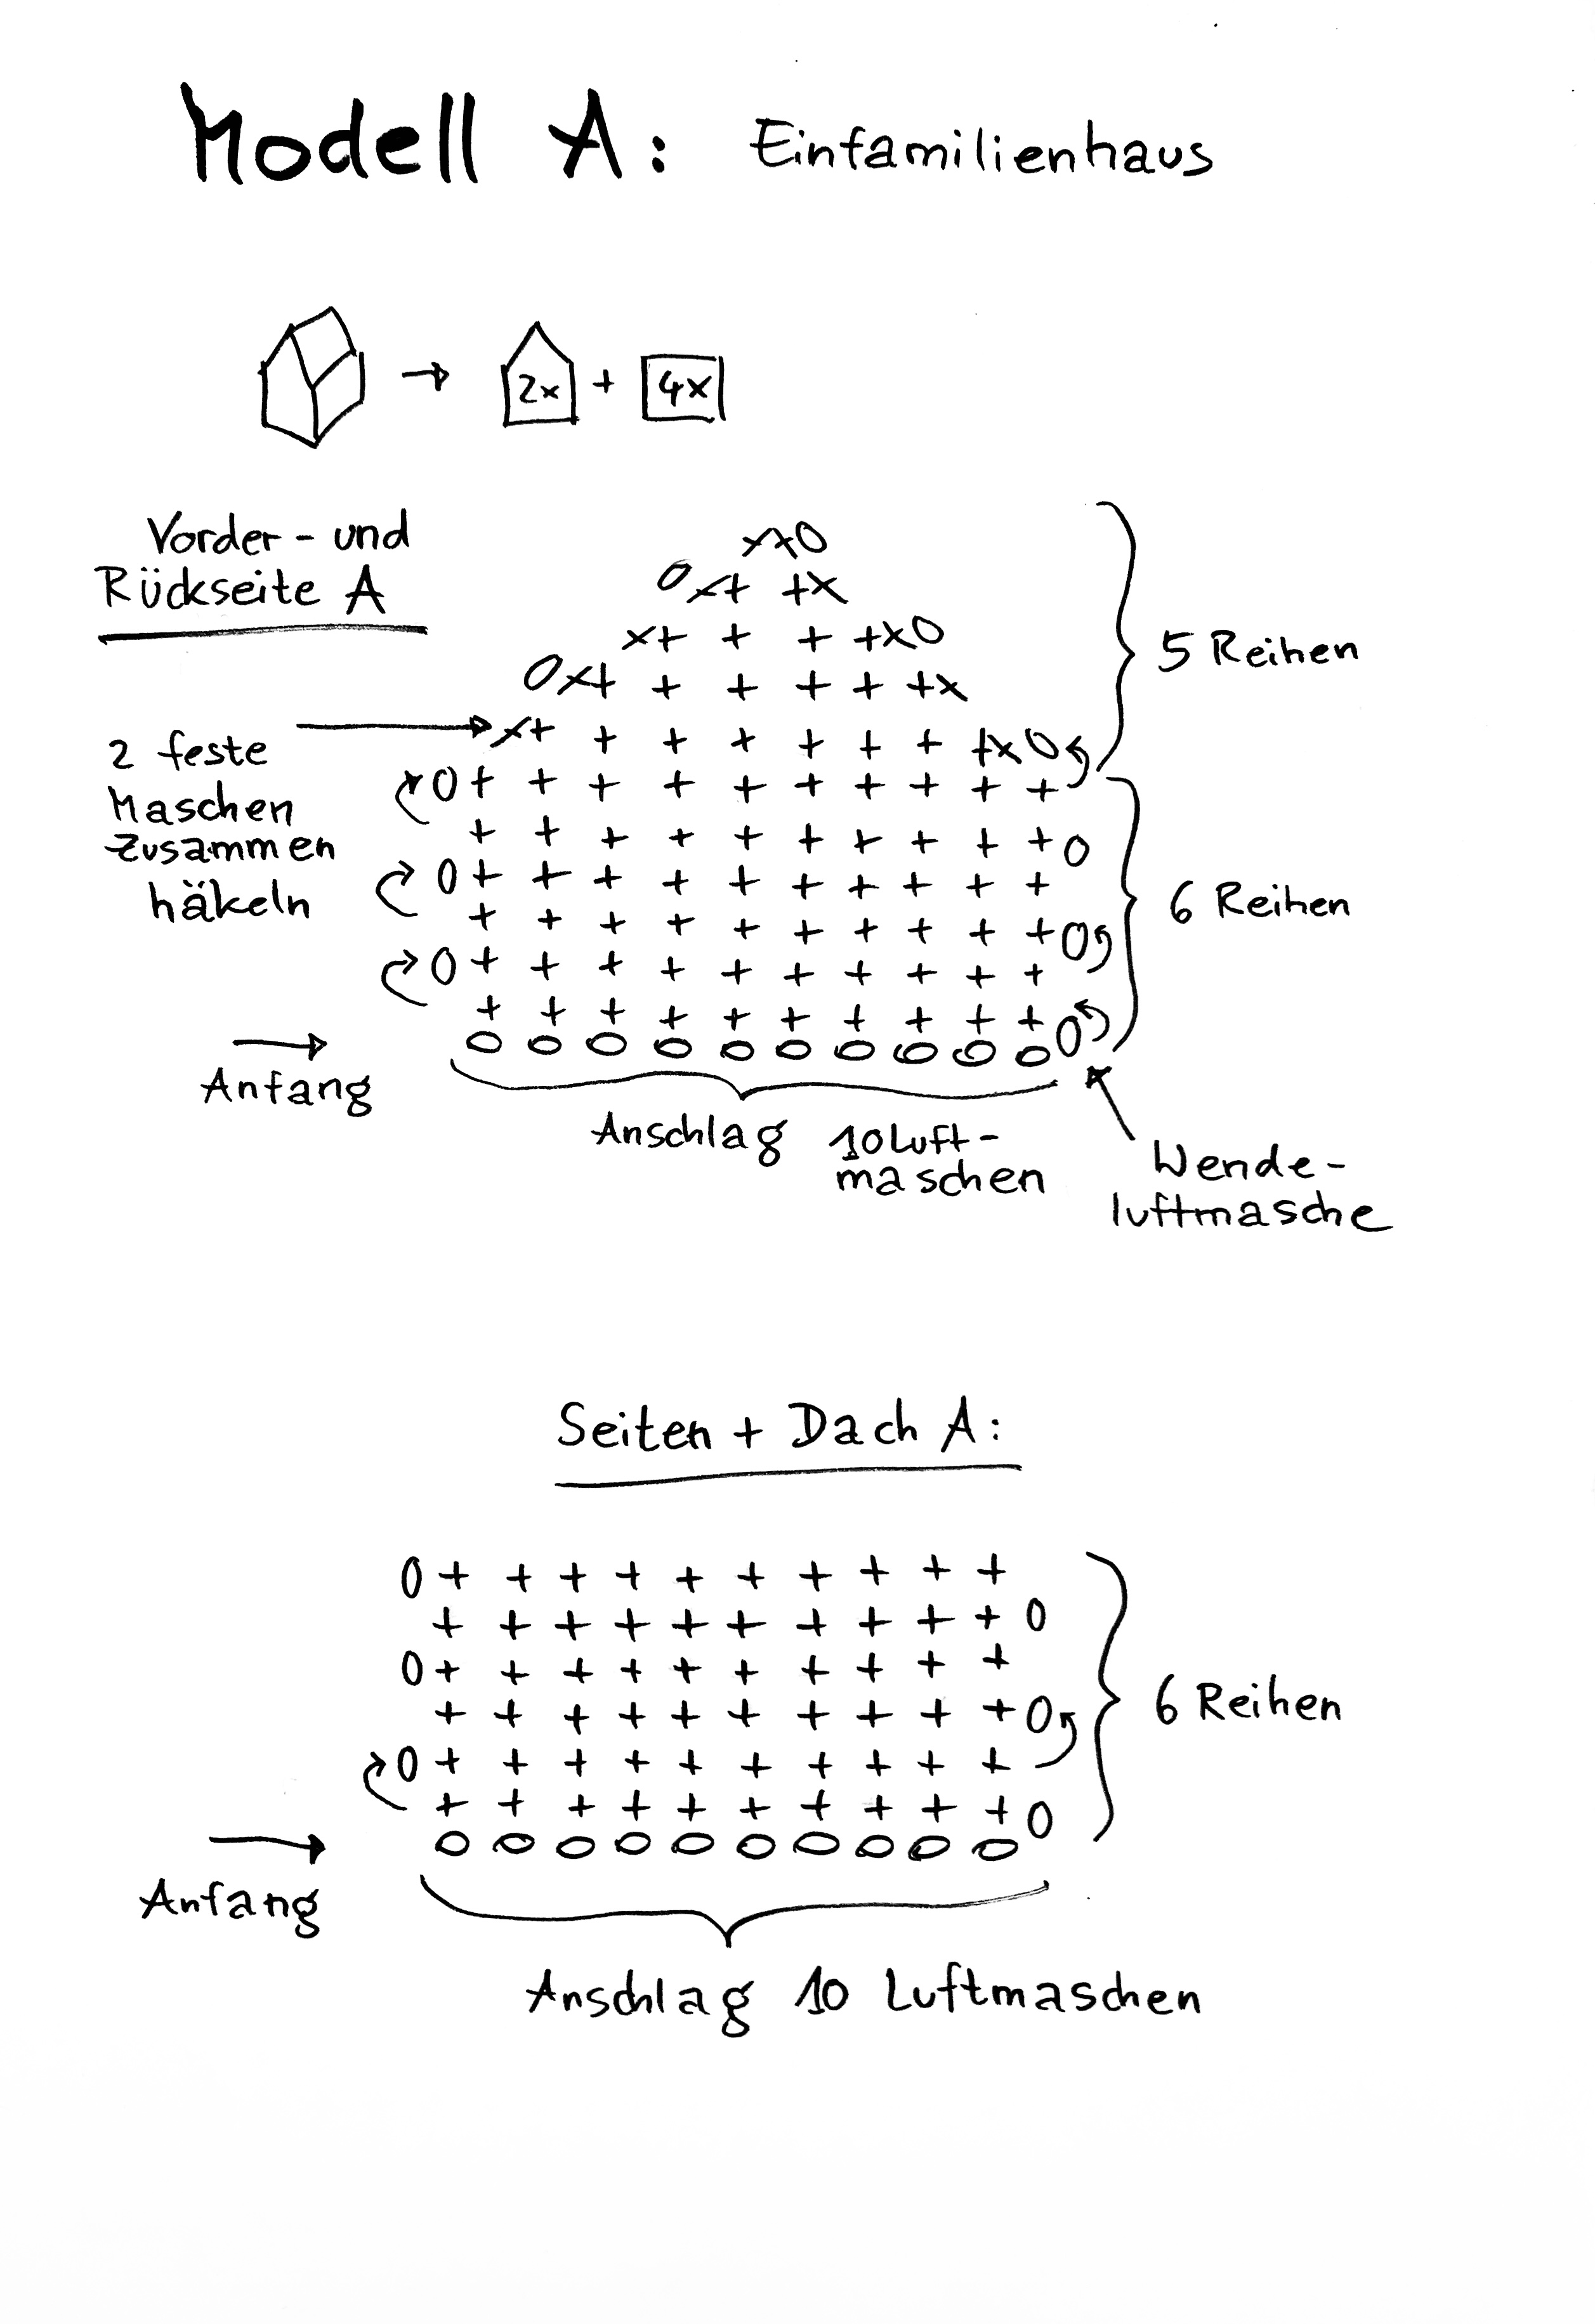 Modell A: Einfamilienhaus
→ 2x + 4x
Vorder- und
Rückseite A
2 feste
Maschen
zusammen
häkeln
x+O
O x+ +x
x+ + + +xO
O x+ + + + + +x
x+ + + + + + + +x O
O + + + + + + + + + +
+ + + + + + + + + + O
O + + + + + + + + + +
+ + + + + + + + + + O
O + + + + + + + + + +
+ + + + + + + + + + O
O O O O O O O O O O
5 Reihen
6 Reihen
→
Anfang
Anschlag 10 Luft-
maschen
Wende-
luftmasche
Seiten + Dach A:
O + + + + + + + + + +
+ + + + + + + + + + O
O + + + + + + + + + +
+ + + + + + + + + + O
O + + + + + + + + + +
+ + + + + + + + + + O
O O O O O O O O O O
6 Reihen
→
Anfang
Anschlag 10 Luftmaschen